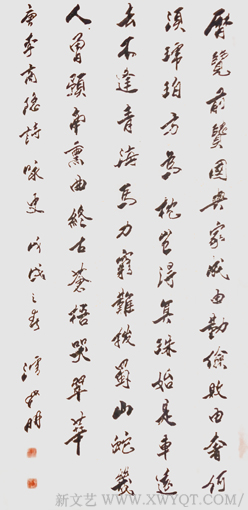 歷覽前賢國與家成由勤儉敗由奢何
須琥珀方為枕豈得真珠始是車運
去不逢青海馬力窮難拔蜀山蛇幾
人曾預南熏曲終古蒼梧哭翠華
唐李商隱詩詠史戊戌之春
新文艺 WWW.XWYQT.COM